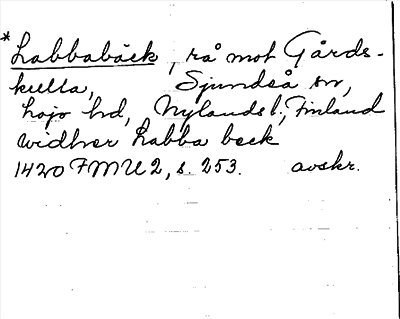 *Labbabäck, rå mot Gårds-
kulla, Sjundså sn,
Lojo hd, Nylands l., Finland
widher Labba beck
1420 FMU 2, s. 253. avskr.